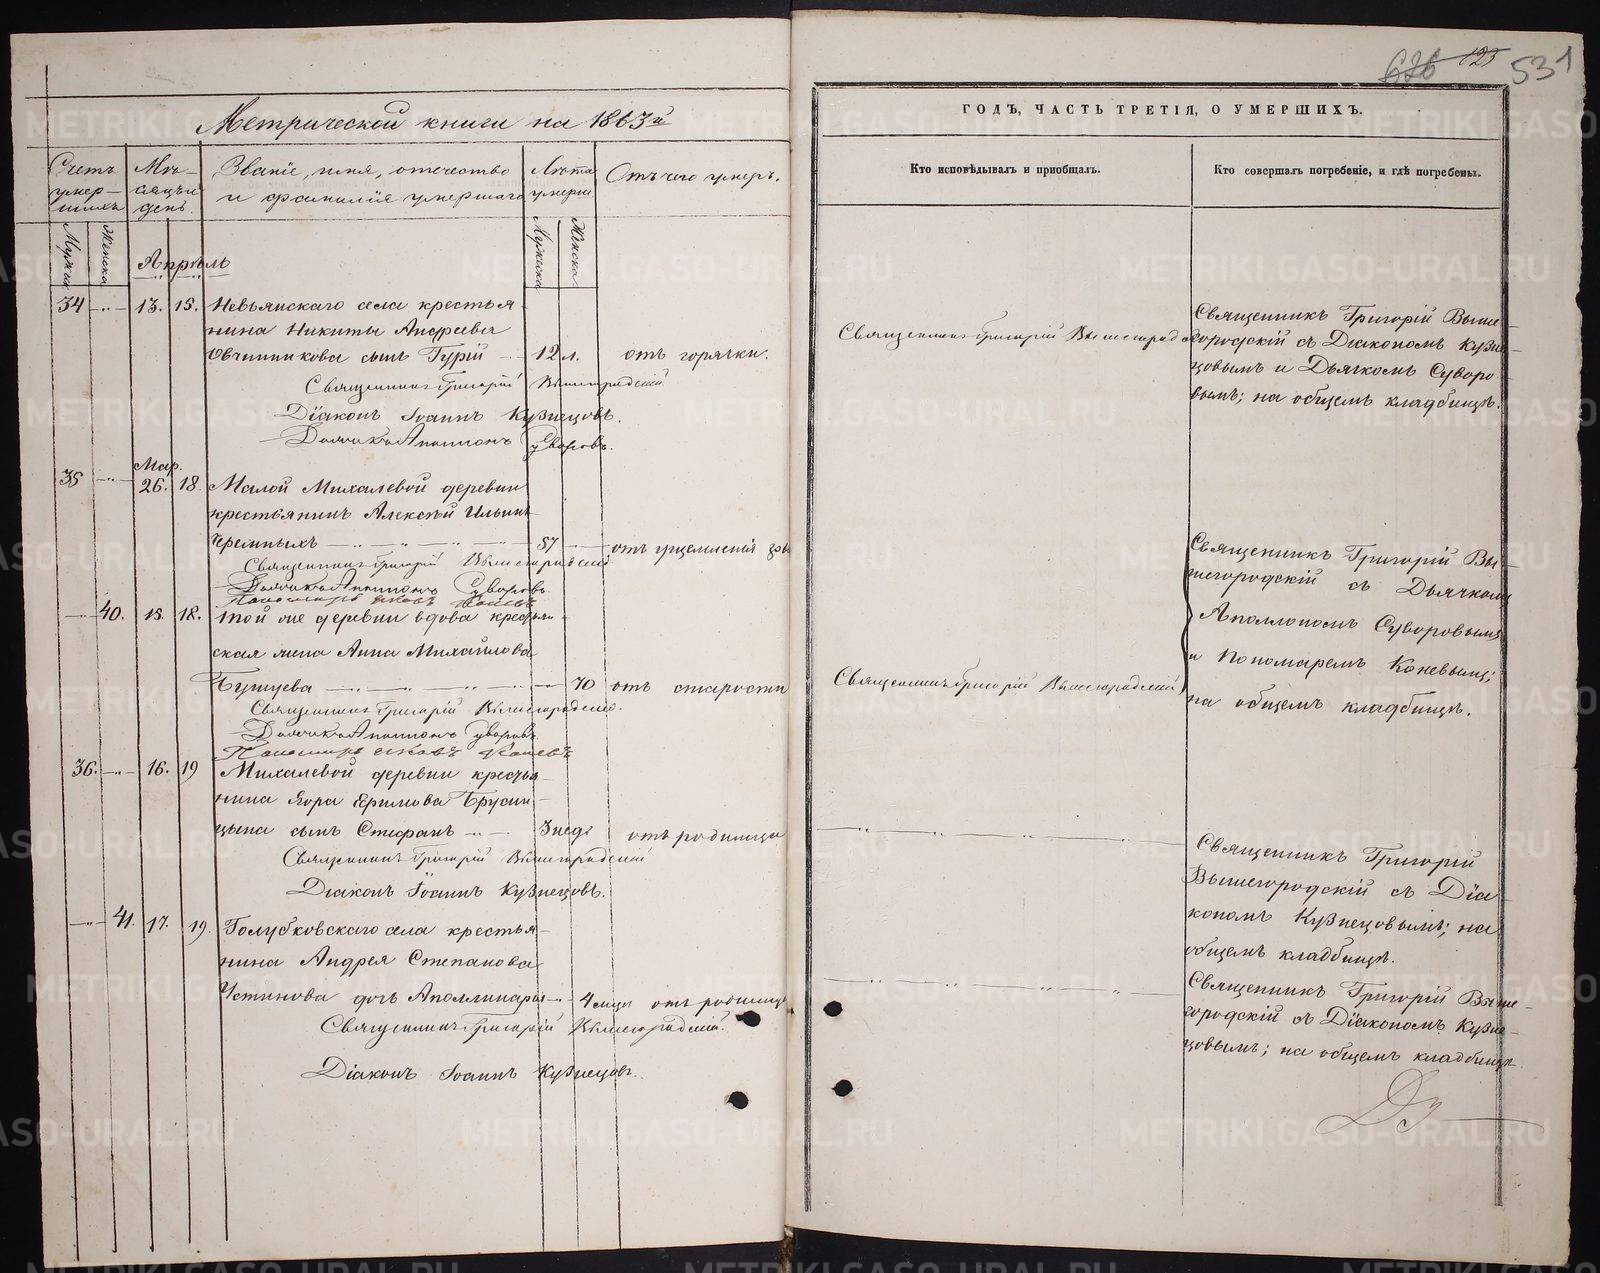 Метрической книги на 1863й
Счетъ умер-шихъ
Мѣ-сяцъ и день
Званіе, имя, отечество
и фамилія умершаго
Лѣта умерш
Отъ чего умеръ.
Мужска
Женска
Мужеска
Женска
Апрѣль
34 -„- 13. 15. Невьянскаго села крестья-
нина Никиты Андреева
Овчинникова сынъ Гурій 12 л. отъ горячки.
Священникъ Григорій Вышегородскій
Діаконъ Іоаннъ Кузнецовъ.
Дьячекъ Аполлонъ Суворовъ.
Мар.
35 -„- 26. 18. Малой Михалевой деревни
крестьянинъ Алексѣй Ильинъ
Черемныхъ 57 отъ ущемленія
Священникъ Григорій Вышегородскій
Дьячекъ Аполлонъ Суворовъ.
Пономарь Яковъ Коневъ
-„- 40. 15. 18. Той же деревни вдова крестьян-
ская жена Анна Михайлова
70 отъ старости
Священникъ Григорій Вышегородскій.
Дьячекъ Аполлонъ Суворовъ
Пономарь Яковъ Коневъ
36. -„- 16. 19 Михалевой деревни крестья-
нина Егора Ефимова Брусни-
цына сынъ Стефанъ 3 нед. отъ родимца
Священникъ Григорій Вышегородскій
Діаконъ Іоаннъ Кузнецовъ.
-„- 41. 17. 19. Голубковскаго села крестья-
нина Андрея Степанова
Устинова дочь Аполлинарія 4 мца отъ родимца
Священникъ Григорій Вышегородскій.
Діаконъ Іоаннъ Кузнецовъ.
626 125 531
ГОДЪ, ЧАСТЬ ТРЕТІЯ, О УМЕРШИХЪ.
Кто исповѣдывалъ и пріобщалъ.
Кто совершалъ погребеніе, и гдѣ погребены.
Священникъ Григорій Вышегородскій
Священникъ Григорій Выше-
городскій съ Діакономъ Кузне-
цовымъ и Дьячкомъ Суворо-
вымъ; на общемъ кладбищѣ.
Священникъ Григорій Вы-
шегородскій съ Дьячкомъ
Аполлономъ Суворовымъ
и Пономаремъ Коневымъ;
на общемъ кладбищѣ.
Священникъ Григорій Вышегородскій
Священникъ Григорій
Вышегородскій съ Діа-
кономъ Кузнецовымъ; на
общемъ кладбищѣ.
Священникъ Григорій Выше-
городскій съ Діакономъ Кузне-
цовымъ; на общемъ кладбищѣ
METRIKI.GASO-URAL.RU